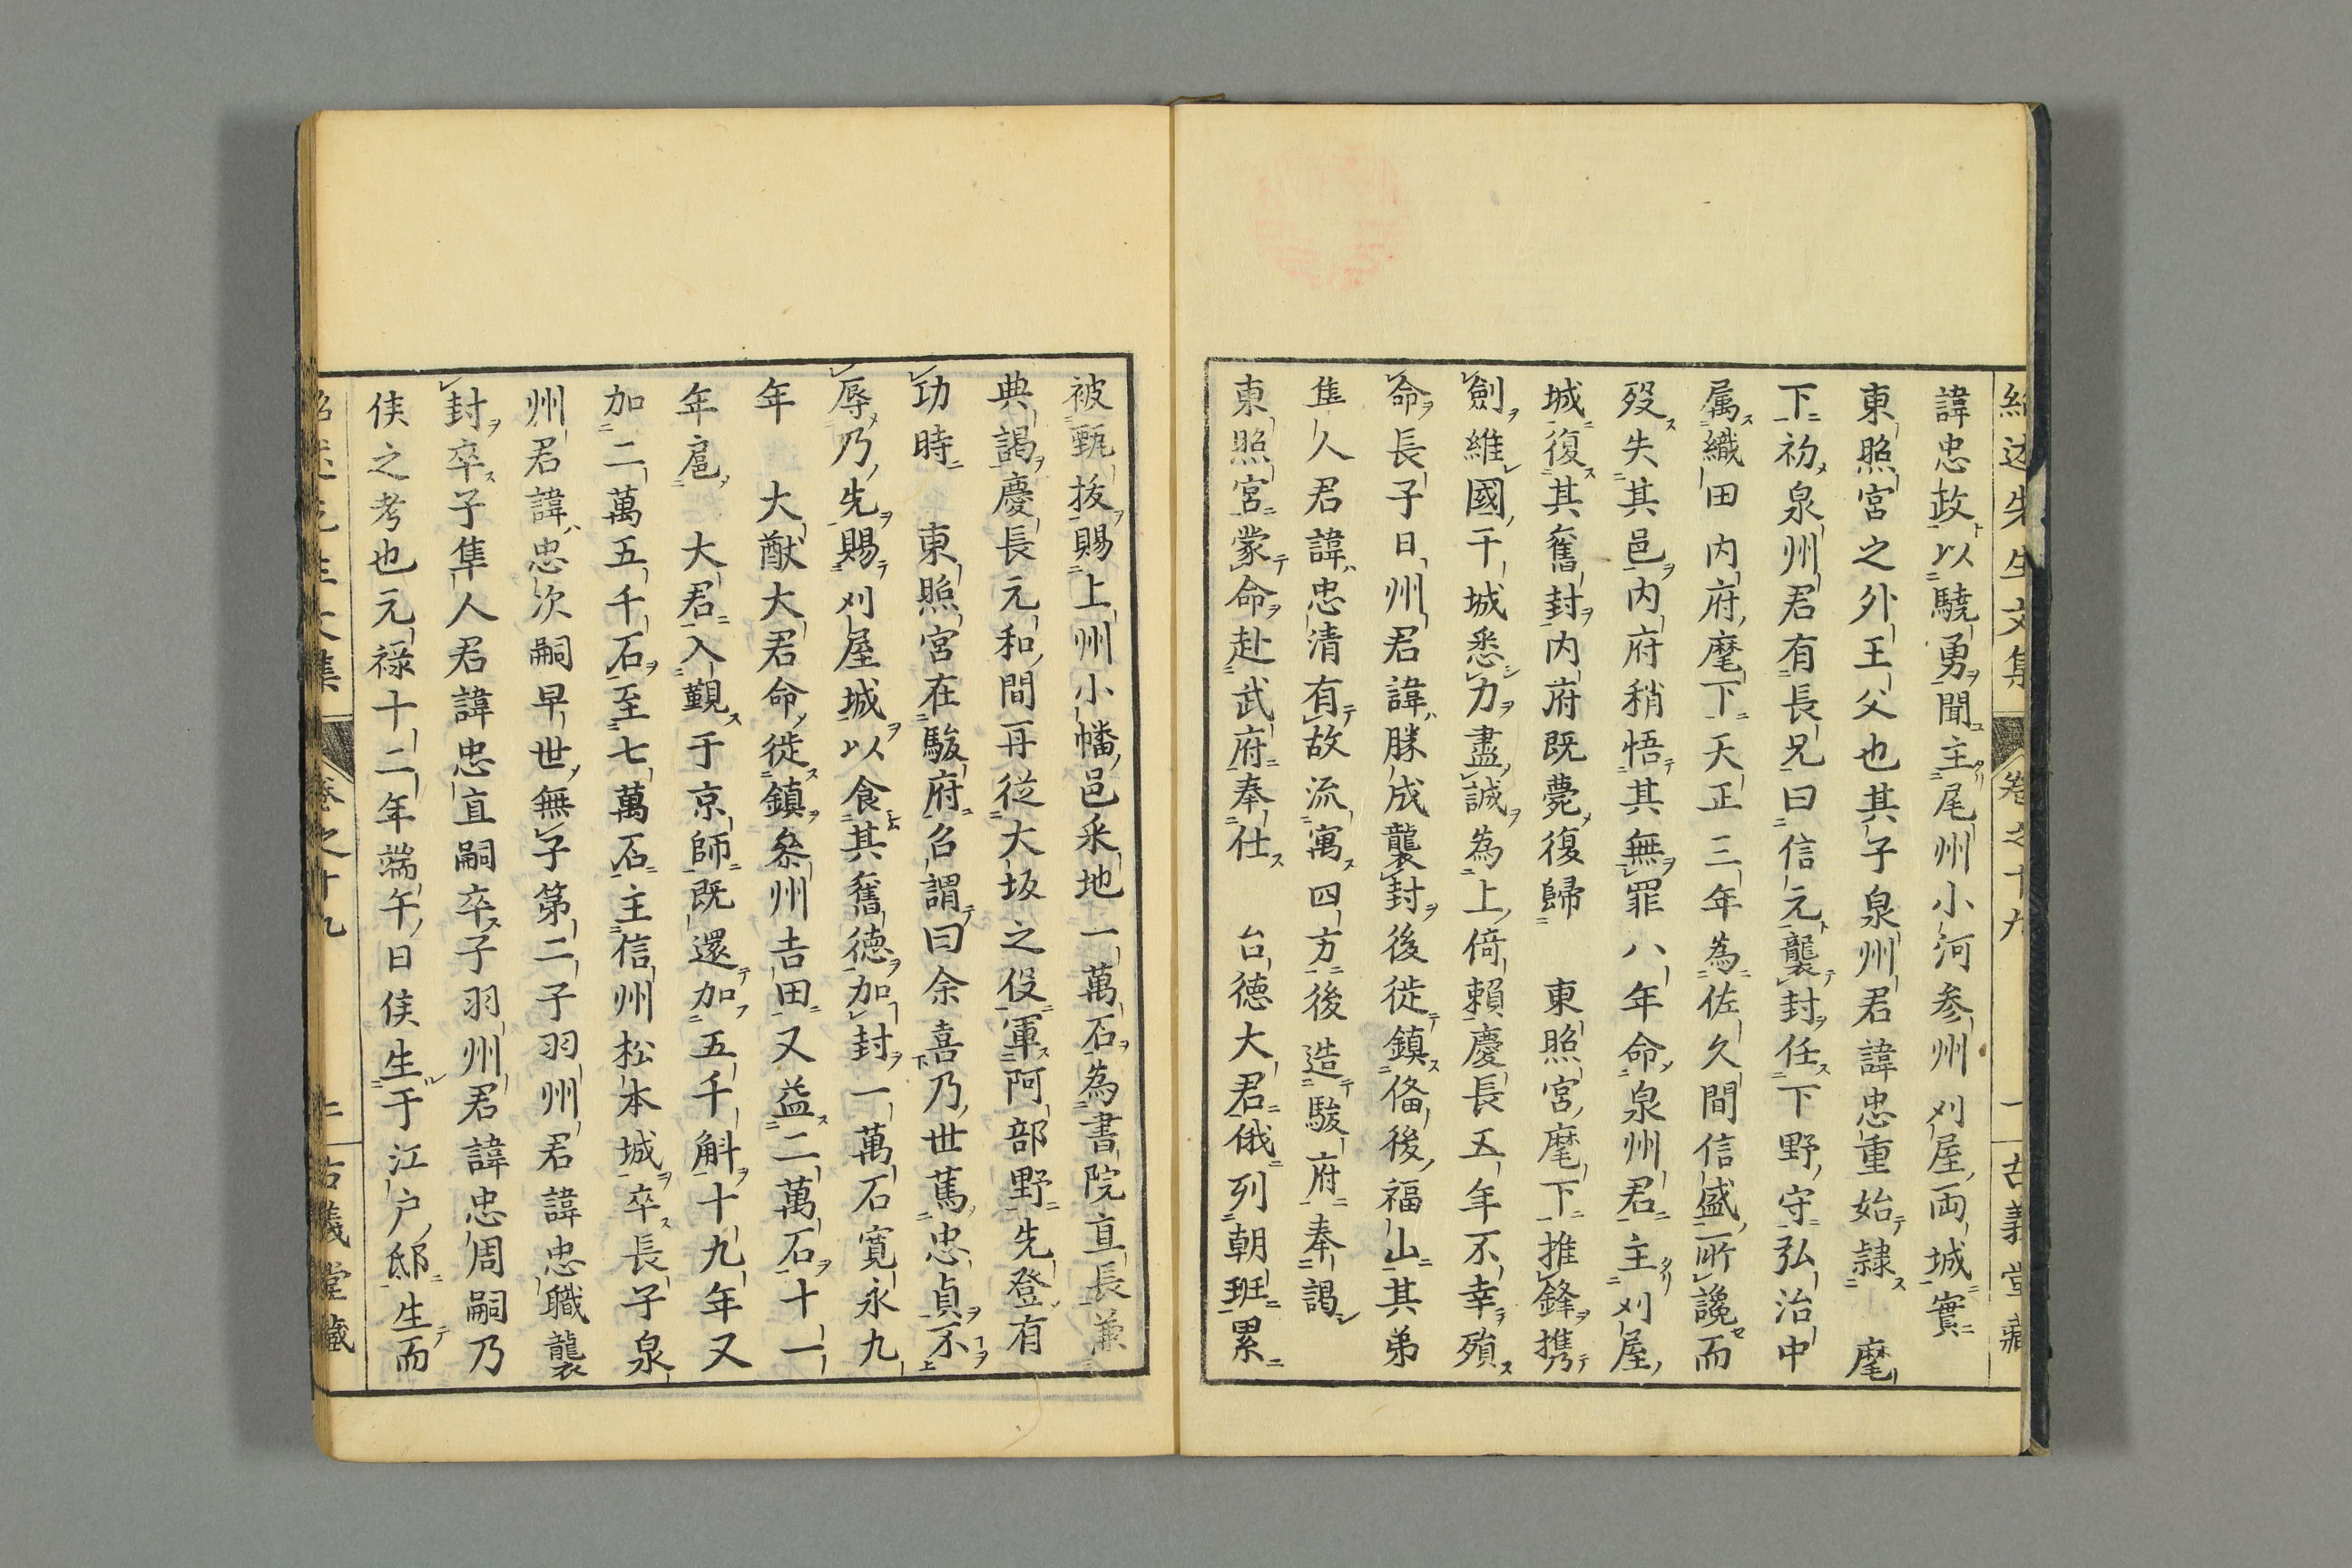 紹述先生文集 卷之十九 一 古義堂藏
諱忠政以驍勇聞主尾州小河参州刈屋両城實
東照宮之外王父也其子泉州君諱忠重始隷 麾
下初泉州君有長兄曰信元襲封任下野守弘治中
属織田内府麾下天正三年為佐久間信盛所讒而
歿失其邑内府稍悟其無罪八年命泉州君主刈屋
城復其舊封内府既薨復歸 東照宮麾下推鋒携
劍維國干城悉力盡誠為上倚賴慶長五年不幸殞
命長子日州君諱勝成襲封後徙鎮俻後福山其弟
隼人君諱忠清有故流寓四方後造駿府奉謁
東照宮蒙命赴武府奉仕 台德大君俄列朝班累
被甄拔賜上州小幡邑采地一萬石為書院直長兼
典謁慶長元和間再從大坂之役軍阿部野先登有
功時 東照宮在駿府召謂曰余喜乃世篤忠貞不
辱乃先賜刈屋城以食其舊德加封一萬石寛永九
年 大猷大君命徙鎮叅州吉田又益二萬石十一
年扈 大君入覲于京師既還加五千斛十九年又
加二萬五千石至七萬石主信州松本城卒長子泉
州君諱忠次嗣早世無子第二子羽州君諱忠職襲
封卒子隼人君諱忠直嗣卒子羽州君諱忠周嗣乃
侯之考也元禄十二年端午日侯生于江户邸生而
紹述先生文集 卷之十九 二 古義堂藏